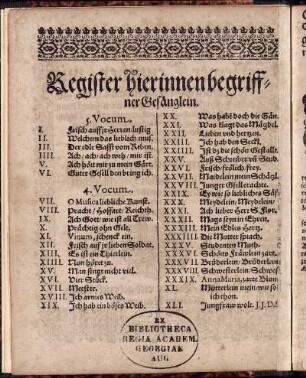 Register hierinnen begriff-
ner Gesänglein.
5. Vocum.
I. Frisch auff
II. Welchem das lieblich
III. Der edle Safft vom Reben.
IIII. Ach / ach / ach
V. Ach hört mir zu mein
VI. Guter Gesell den bring ich.
4. Vocum.
VII. O Musica liebliche Kunst.
VIII. Pracht / Hoffart / Reichth.
IX. Ach Gott wie ist all Trew.
X. Prächtig ohn Geld.
XI. Vinum, schenck ein.
XII. Frischauff jr lieben Soldat.
XIII. Es ist ein Thierlein.
XIIII. Man höret zu.
XV. Man singt nicht viel.
XVI. Vier Stück.
XVII. Meister.
XVIII. Ich armes Weib.
XIX. Ich hab ein böses Weib.
XX. Was habt doch die Gän.
XXI. Was fragt das Mägdel.
XXII. Lieben und hertzen.
XXIII. Ich hab den Seckl.
XXIIII. Ist dz die schöne Gestallt.
XXV. Auß Schreiber vñ Stud.
XXVI. Frisch / frölich / frey.
XXVII. Maidelein mein Schägl.
XXVIII. Junger Gselle
XXIX. Es wie so liebliches
XXX. Meydelein / Meydelein /
XXXI. Ach lieber Herr S. Flor.
XXXII. Mags seyn in Ehren.
XXXIII. Mein Edles Hertz.
XXXIIII. Die Mutter sprach.
XXXV. Studenten Muth.
XXXVI. Schöns Fräwlein zart.
XXXVII. Brüderlein / Brüderlein
XXXVIII. Schwesterlein / Schwes.
XXXIX. Anna Maria, zarte Blum
XL. Mörterlein mein / wie sol
ich thon.
XLI. Jungfraw wolt. J. J. D.
EX
BIBLIOTHECA
REGIA ACADEM.
GEORGIAE
AUG.